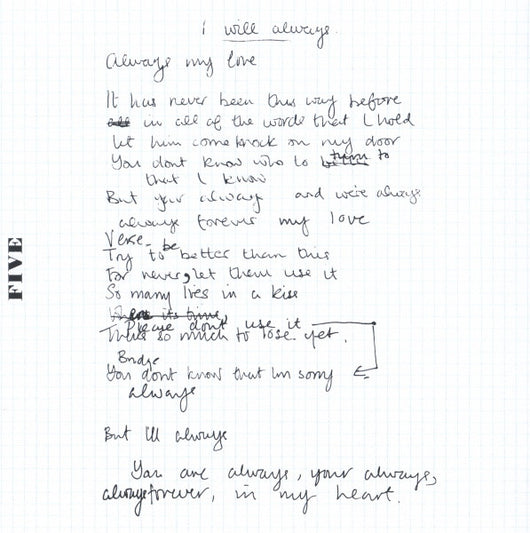 I will always.
Always my love
It has never been this way before
all in all of the words that I hold
let him come knock on my door
You dont know who to turn to
that I know
But your always and we're always
always forever my love
Verse -
Try to be better than this
For never, let them use it
So many lies in a kiss
Please dont use it
Theres so much to lose yet.
Bridge
You dont know that Im sorry
always
But Ill always
You are always, your always,
always forever, in my heart.
FIVE